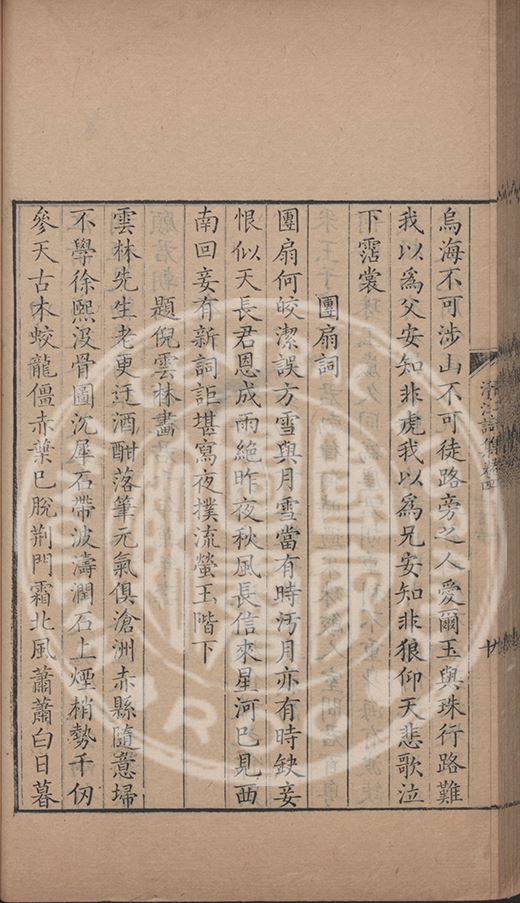 烏海不可涉山不可徒路旁之人愛爾玉與珠行路難
我以爲父安知非虎我以爲兄安知非狼仰天悲歌泣
下霑裳
團扇詞
團扇何皎潔誤方雪與月雪當有時汚月亦有時缺妾
恨似天長君恩成雨絶昨夜秋風長信來星河已見西
南回妾有新詞詎堪寫夜撲流螢玉階下
題倪雲林畫
雲林先生老更迂酒酣落筆元氣俱滄洲赤縣隨意埽
不學徐熙沒骨圖沉犀石帶波濤潤石上煙梢勢千仞
參天古木蛟龍僵赤葉已脫荆門霜北風蕭蕭白日暮
詩集卷四
廿